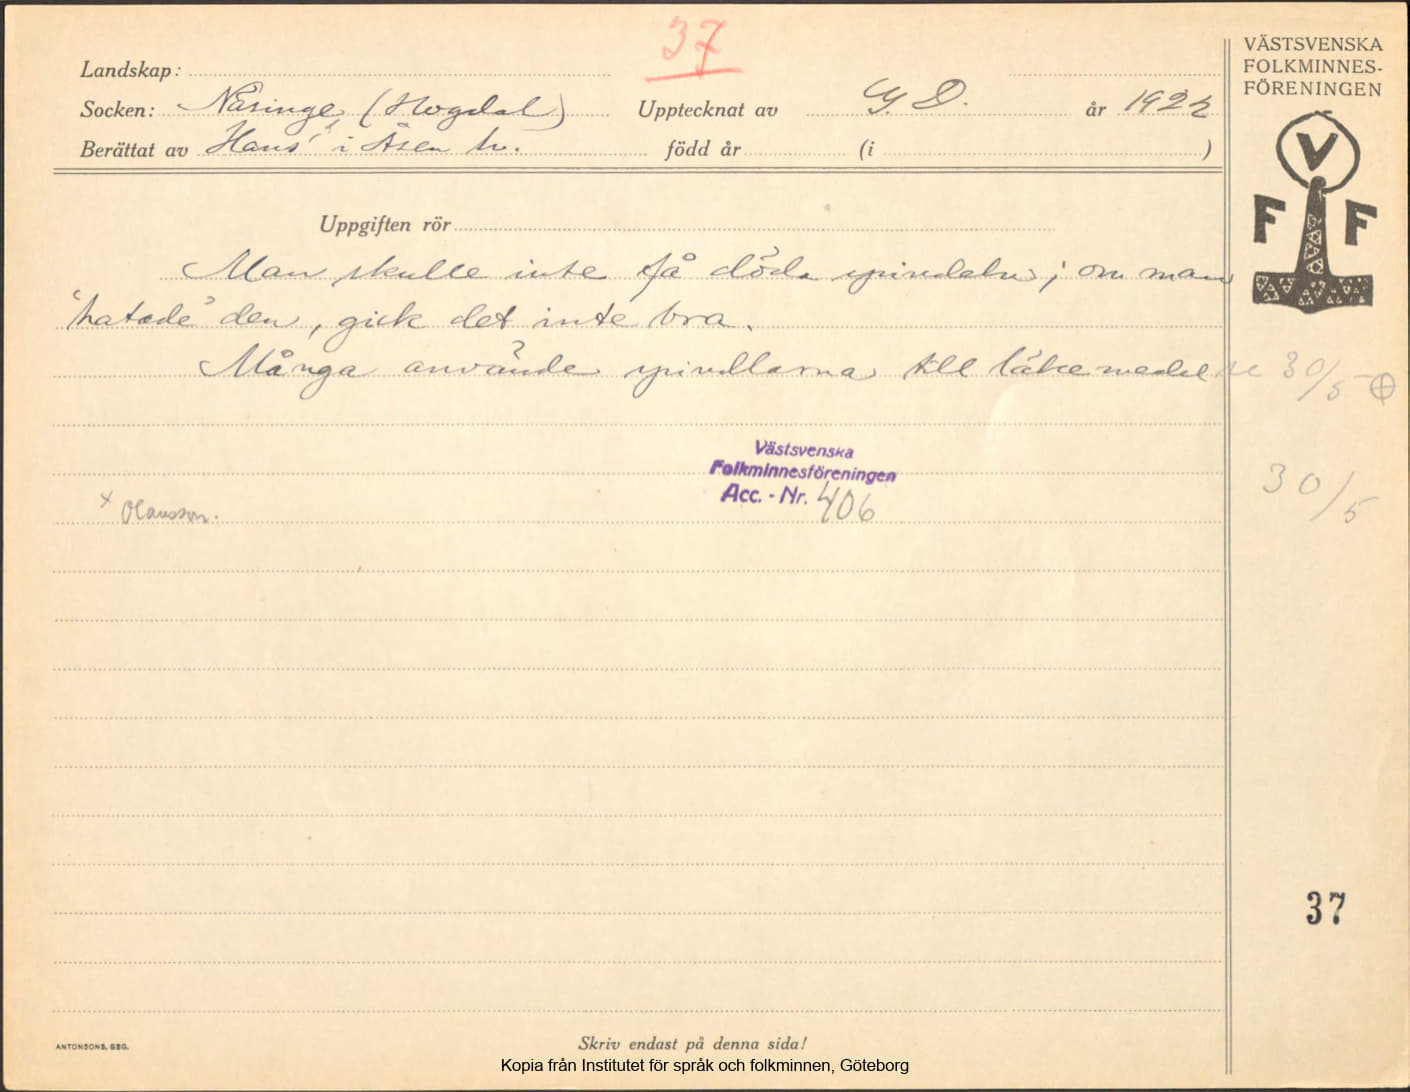 37
VÄSTSVENSKA
FOLKMINNES-
FÖRENINGEN
Landskap:
Socken: Näsinge (Hogdal) Upptecknat av G. D. år 1922
Berättat av Hans' i Åsen h. född år (i )
V
F F
Uppgiften rör
Man skulle inte få döda spindeln; om man
"hatade" den, gick det inte bra.
Många använde spindlarna till läkemedel 30/5
Västsvenska
Folkminnesföreningen
Acc. - Nr. 406
30/5
x Olausson.
37
ANTONSONS, GBG.
Skriv endast på denna sida!
Kopia från Institutet för språk och folkminnen, Göteborg